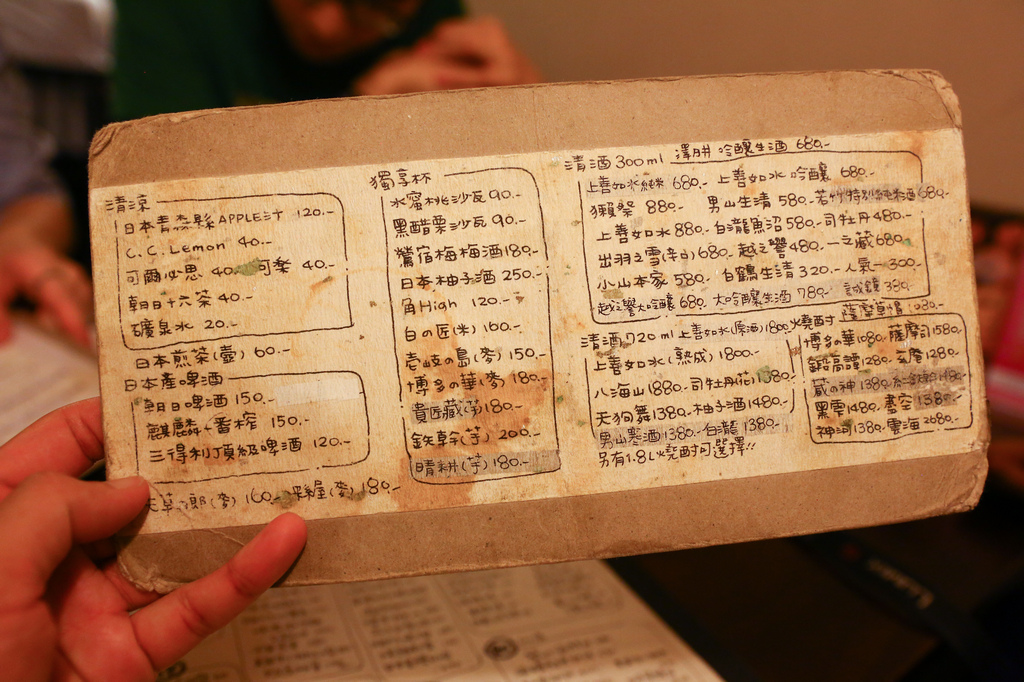 清涼
日本青森縣APPLE汁 120.-
C.C. Lemon 40.-
可爾必思 40. 可樂 40.-
朝日十六茶 40.-
礦泉水 20.-
日本煎茶(壺) 60.-
日本產啤酒
朝日啤酒 150.-
麒麟一番榨 150.-
三得利頂級啤酒 120.-
郎(麥) 160.- (麥) 180.-
獨享杯
水蜜桃沙瓦 90.-
黑醋栗沙瓦 90.-
鶯宿梅梅酒 180.-
日本柚子酒 250.-
角High 120.-
白の匠(米) 160.-
壱岐の島(麥) 150.-
博多の華(麥) 180.-
貴匠藏(芋) 180.-
鉄幹(芋) 200.-
晴耕(芋) 180.-
清酒 300ml 澤月井 吟釀生酒 680.-
上善如水純米 680.- 上善如水 吟釀 680.-
獺祭 880.- 男山生清 580.- 若竹特別純米酒 680.-
上善如水 880.- 白瀧魚沼 580.- 司牡丹 480.-
出羽之雪(辛口) 680.- 越之譽 480.- 一之藏 680.-
小山本家 580.- 白鶴生清 320.- 人氣一 300.-
越之譽大吟釀 680.- 大吟釀生酒 780.- 誠鏡 380.-
清酒 720ml 上善如水(原酒) 1800.-
上善如水(熟成) 1800.-
八海山 1880.- 司牡丹(花) 1380.-
天狗舞 1380.- 柚子酒 1480.-
男山寒酒 1380.- 白瀧 1380.-
另有1.8L燒酎可選擇!!
燒酎 薩摩 1080.-
博多の華 1080.- 薩摩司 1580.-
鍛高譚 1280.- 玄摩 1280.-
蔵の神 1380.-
黑雲 1480.- 1580.-
神河 1380.- 雲海 2080.-